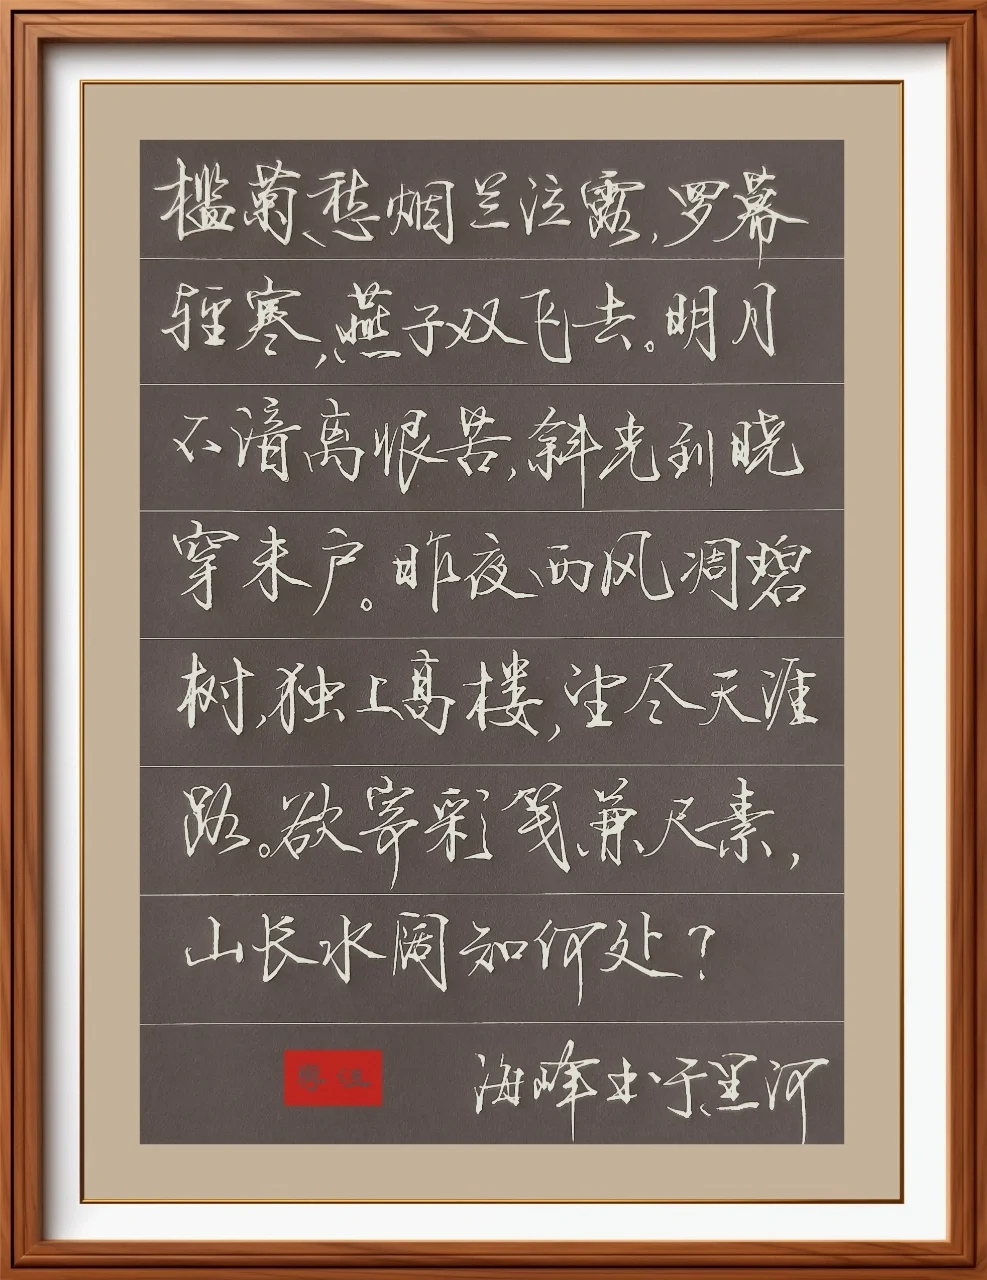 槛菊愁烟兰泣露,罗幕
轻寒,燕子双飞去。明月
不谙离恨苦,斜光到晓
穿朱户。昨夜西风凋碧
树,独上高楼,望尽天涯
路。欲寄彩笺兼尺素,
山长水阔知何处?
海峰书于黑河